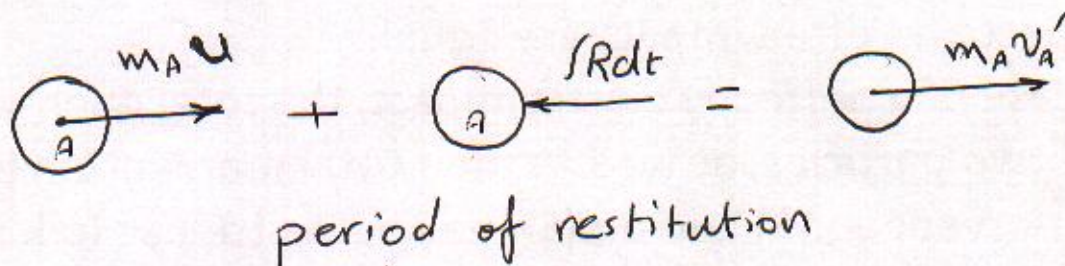 m_A u + ∫Rdt = m_A v_A'
A A
period of restitution